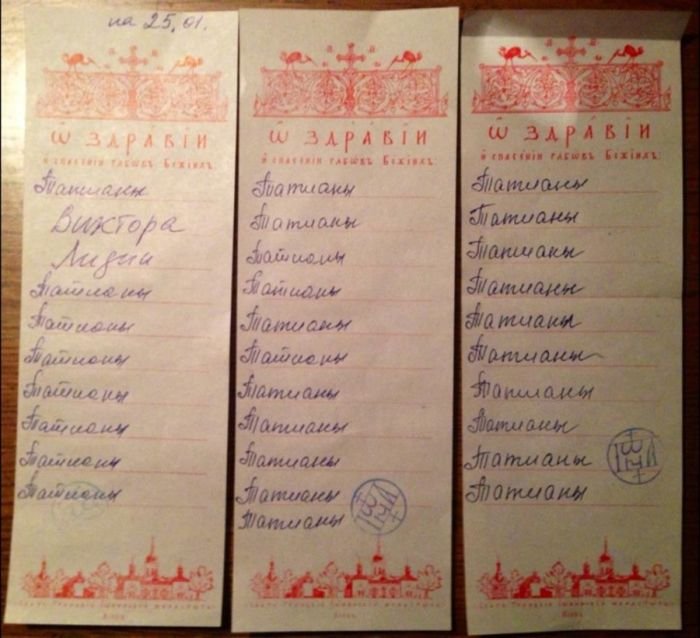 на 25.01.
Ѿ ЗДРА́ВІИ
и спасенїи рабѡвъ Божїихъ:
Татианы
Виктора
Лидиа
Татианы
Татианы
Татианы
Татианы
Татианы
Татианы
Татианы
Ѿ ЗДРА́ВІИ
и спасенїи рабѡвъ Божїихъ:
Татианы
Татианы
Татианы
Татианы
Татианы
Татианы
Татианы
Татианы
Татианы
Татианы
Татианы
Ѿ ЗДРА́ВІИ
и спасенїи рабѡвъ Божїихъ:
Татианы
Татианы
Татианы
Татианы
Татианы
Татианы
Татианы
Татианы
Татианы
Татианы